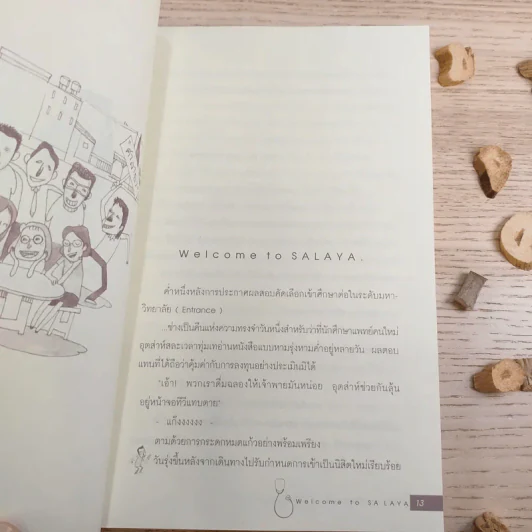 Welcome to SALAYA.
ค่ำหนึ่งหลังการประกาศผลสอบคัดเลือกเข้าศึกษาต่อในระดับมหา-
วิทยาลัย ( Entrance )
...ช่างเป็นคืนแห่งความทรงจำวันหนึ่งสำหรับว่าที่นักศึกษาแพทย์คนใหม่
อุตส่าห์สละเวลาทุ่มเทอ่านหนังสือแบบหามรุ่งหามค่ำอยู่หลายวัน ผลตอบ
แทนที่ได้ถือว่าคุ้มค่ากับการลงทุนอย่างประเมินมิได้
"เอ้า! พวกเราดื่มฉลองให้เจ้าพายมันหน่อย อุตส่าห์ช่วยกันลุ้น
อยู่หน้าจอทีวีแทบตาย"
- แก๊งงงงงง -
ตามด้วยการกระดกหมดแก้วอย่างพร้อมเพรียง
วันรุ่งขึ้นหลังจากเดินทางไปรับกำหนดการเข้าเป็นนิสิตใหม่เรียบร้อย
Welcome to SALAYA 13